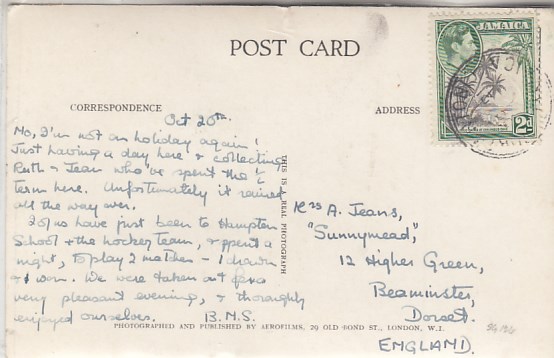 POST CARD
JAMAICA
2d
CORRESPONDENCE
ADDRESS
Oct 20th
No, I'm not on holiday again!
Just having a day here & collecting
Ruth & Jean who've spent the ½
term here. Unfortunately it rained
all the way over.
20 of us have just been to Hampton
School & the hockey team, & spent a
night, to play 2 matches - 1 drawn
& 1 won. We were taken out for a
very pleasant evening, & thoroughly
enjoyed ourselves. B.M.S.
THIS IS A REAL PHOTOGRAPH
Mrs A. Jeans,
"Sunnymead,"
12 Higher Green,
Beaminster,
Dorset.
ENGLAND.
PHOTOGRAPHED AND PUBLISHED BY AEROFILMS, 29 OLD BOND ST., LONDON, W.1.